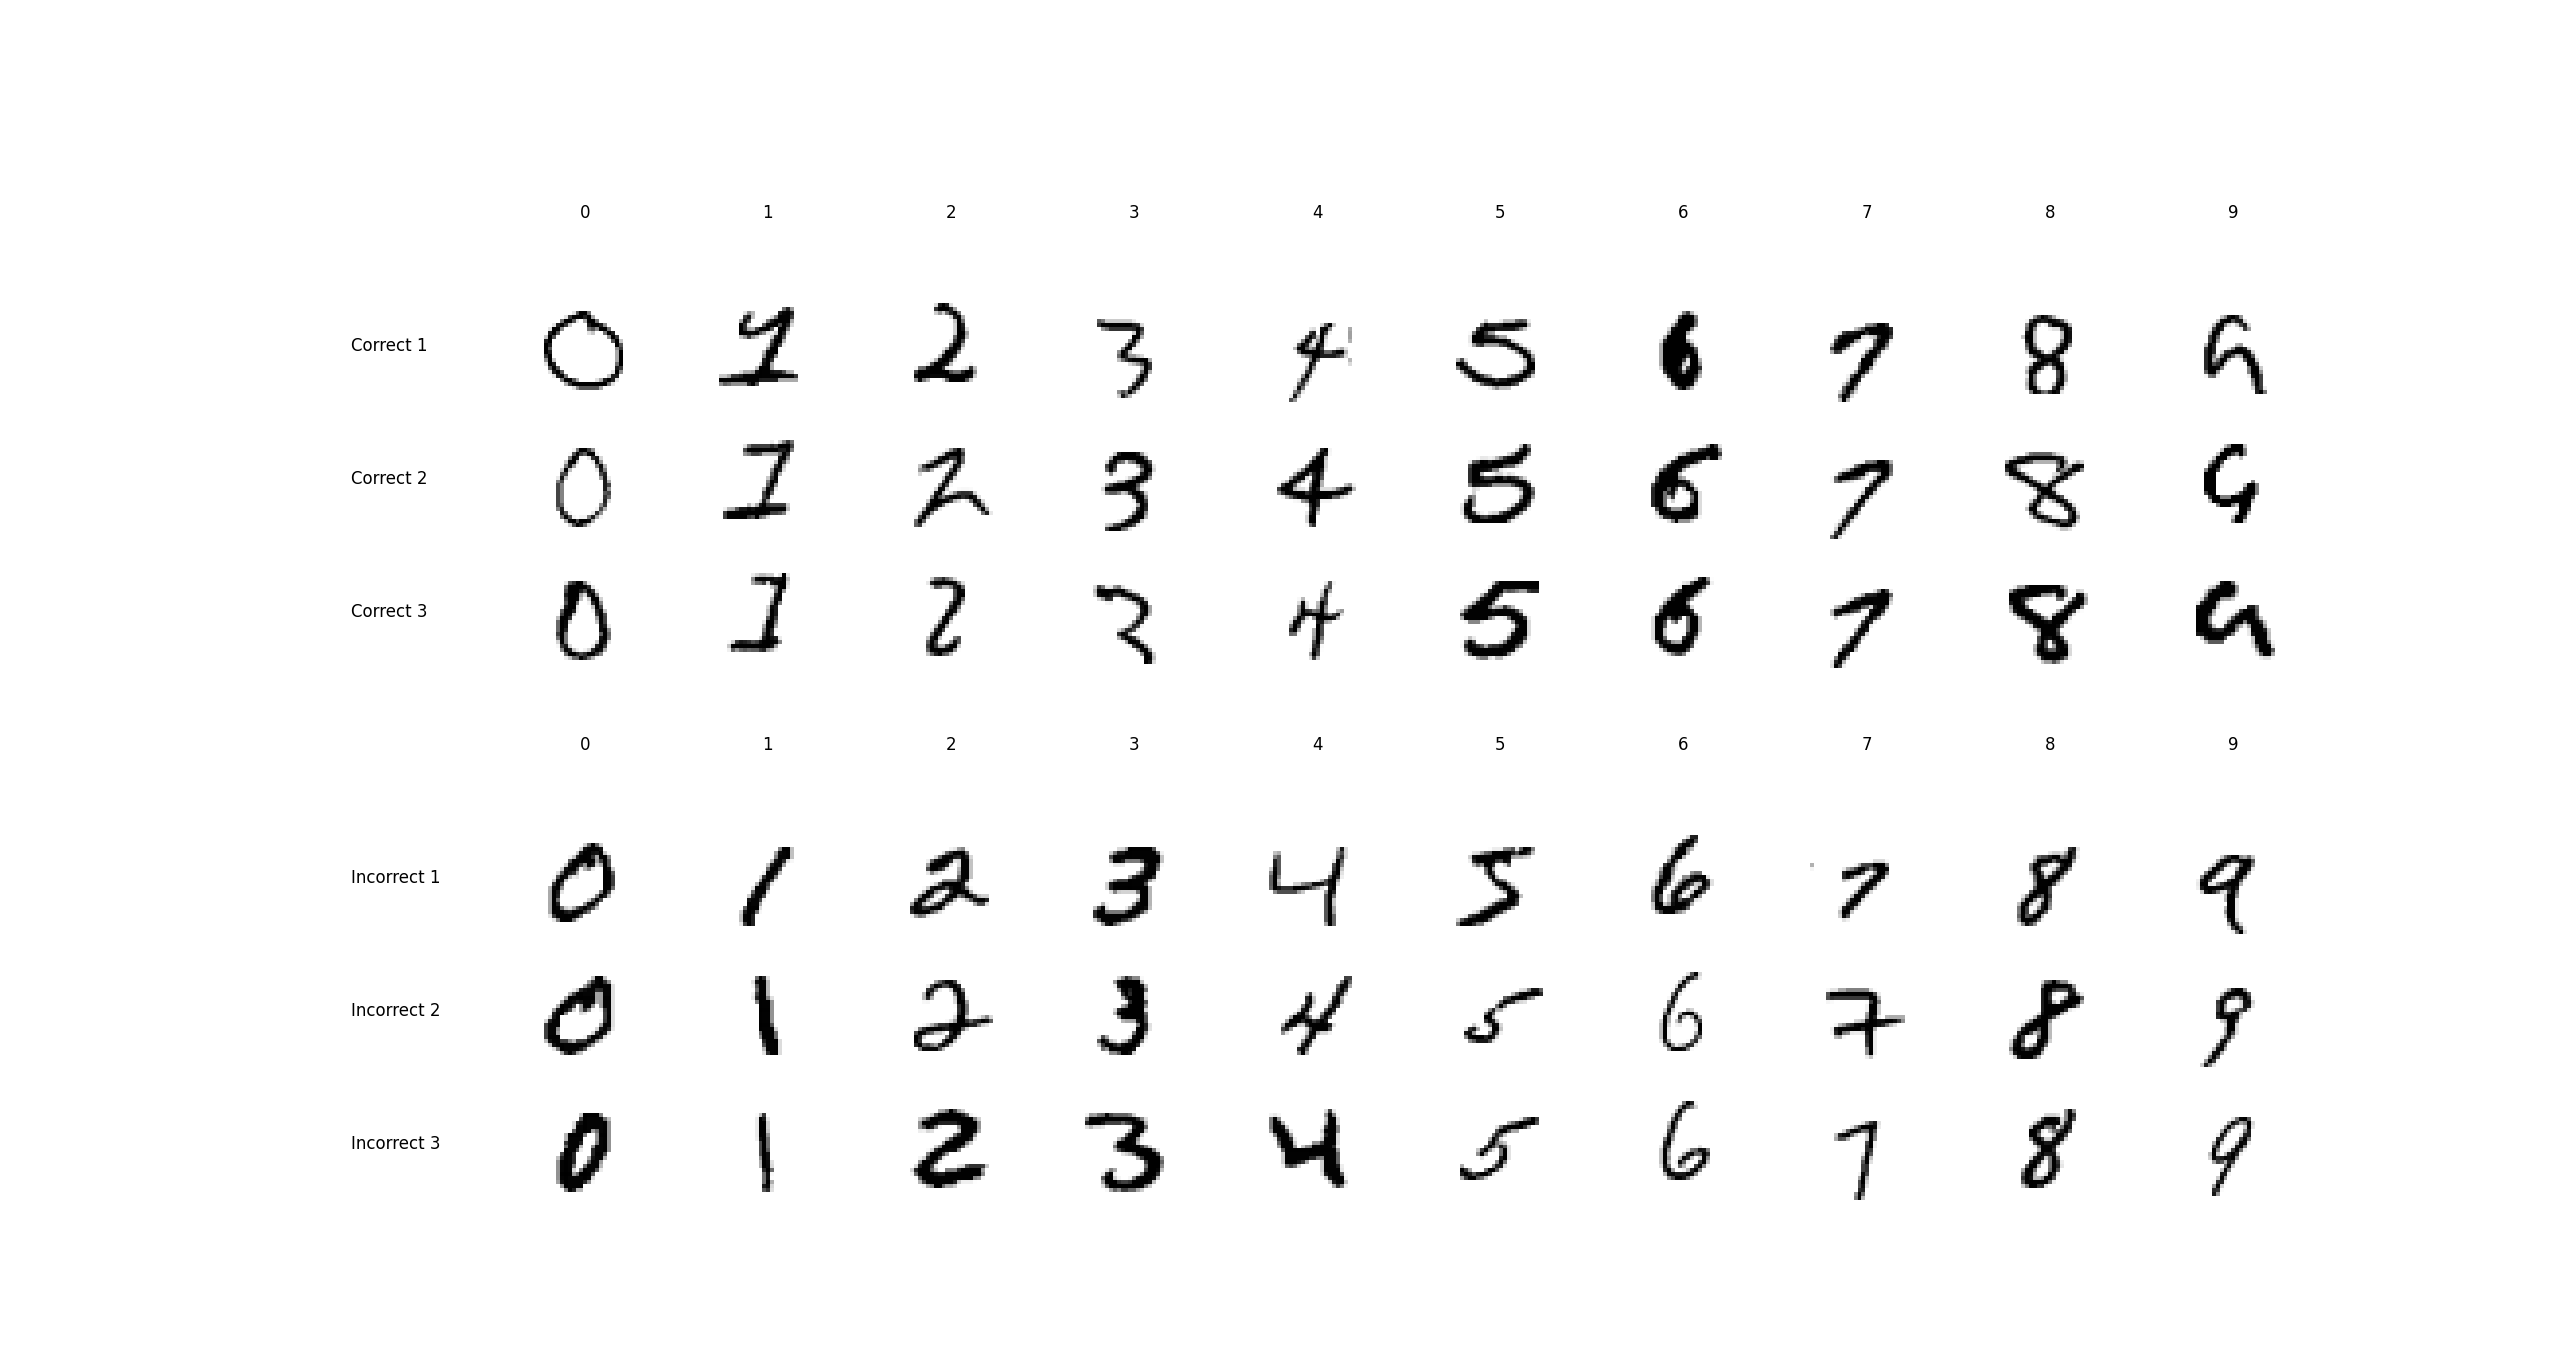 0 1 2 3 4 5 6 7 8 9
Correct 1 0 1 2 3 4 5 6 7 8 9
Correct 2 0 1 2 3 4 5 6 7 8 9
Correct 3 0 1 2 3 4 5 6 7 8 9
0 1 2 3 4 5 6 7 8 9
Incorrect 1 0 1 2 3 4 5 6 7 8 9
Incorrect 2 0 1 2 3 4 5 6 7 8 9
Incorrect 3 0 1 2 3 4 5 6 7 8 9